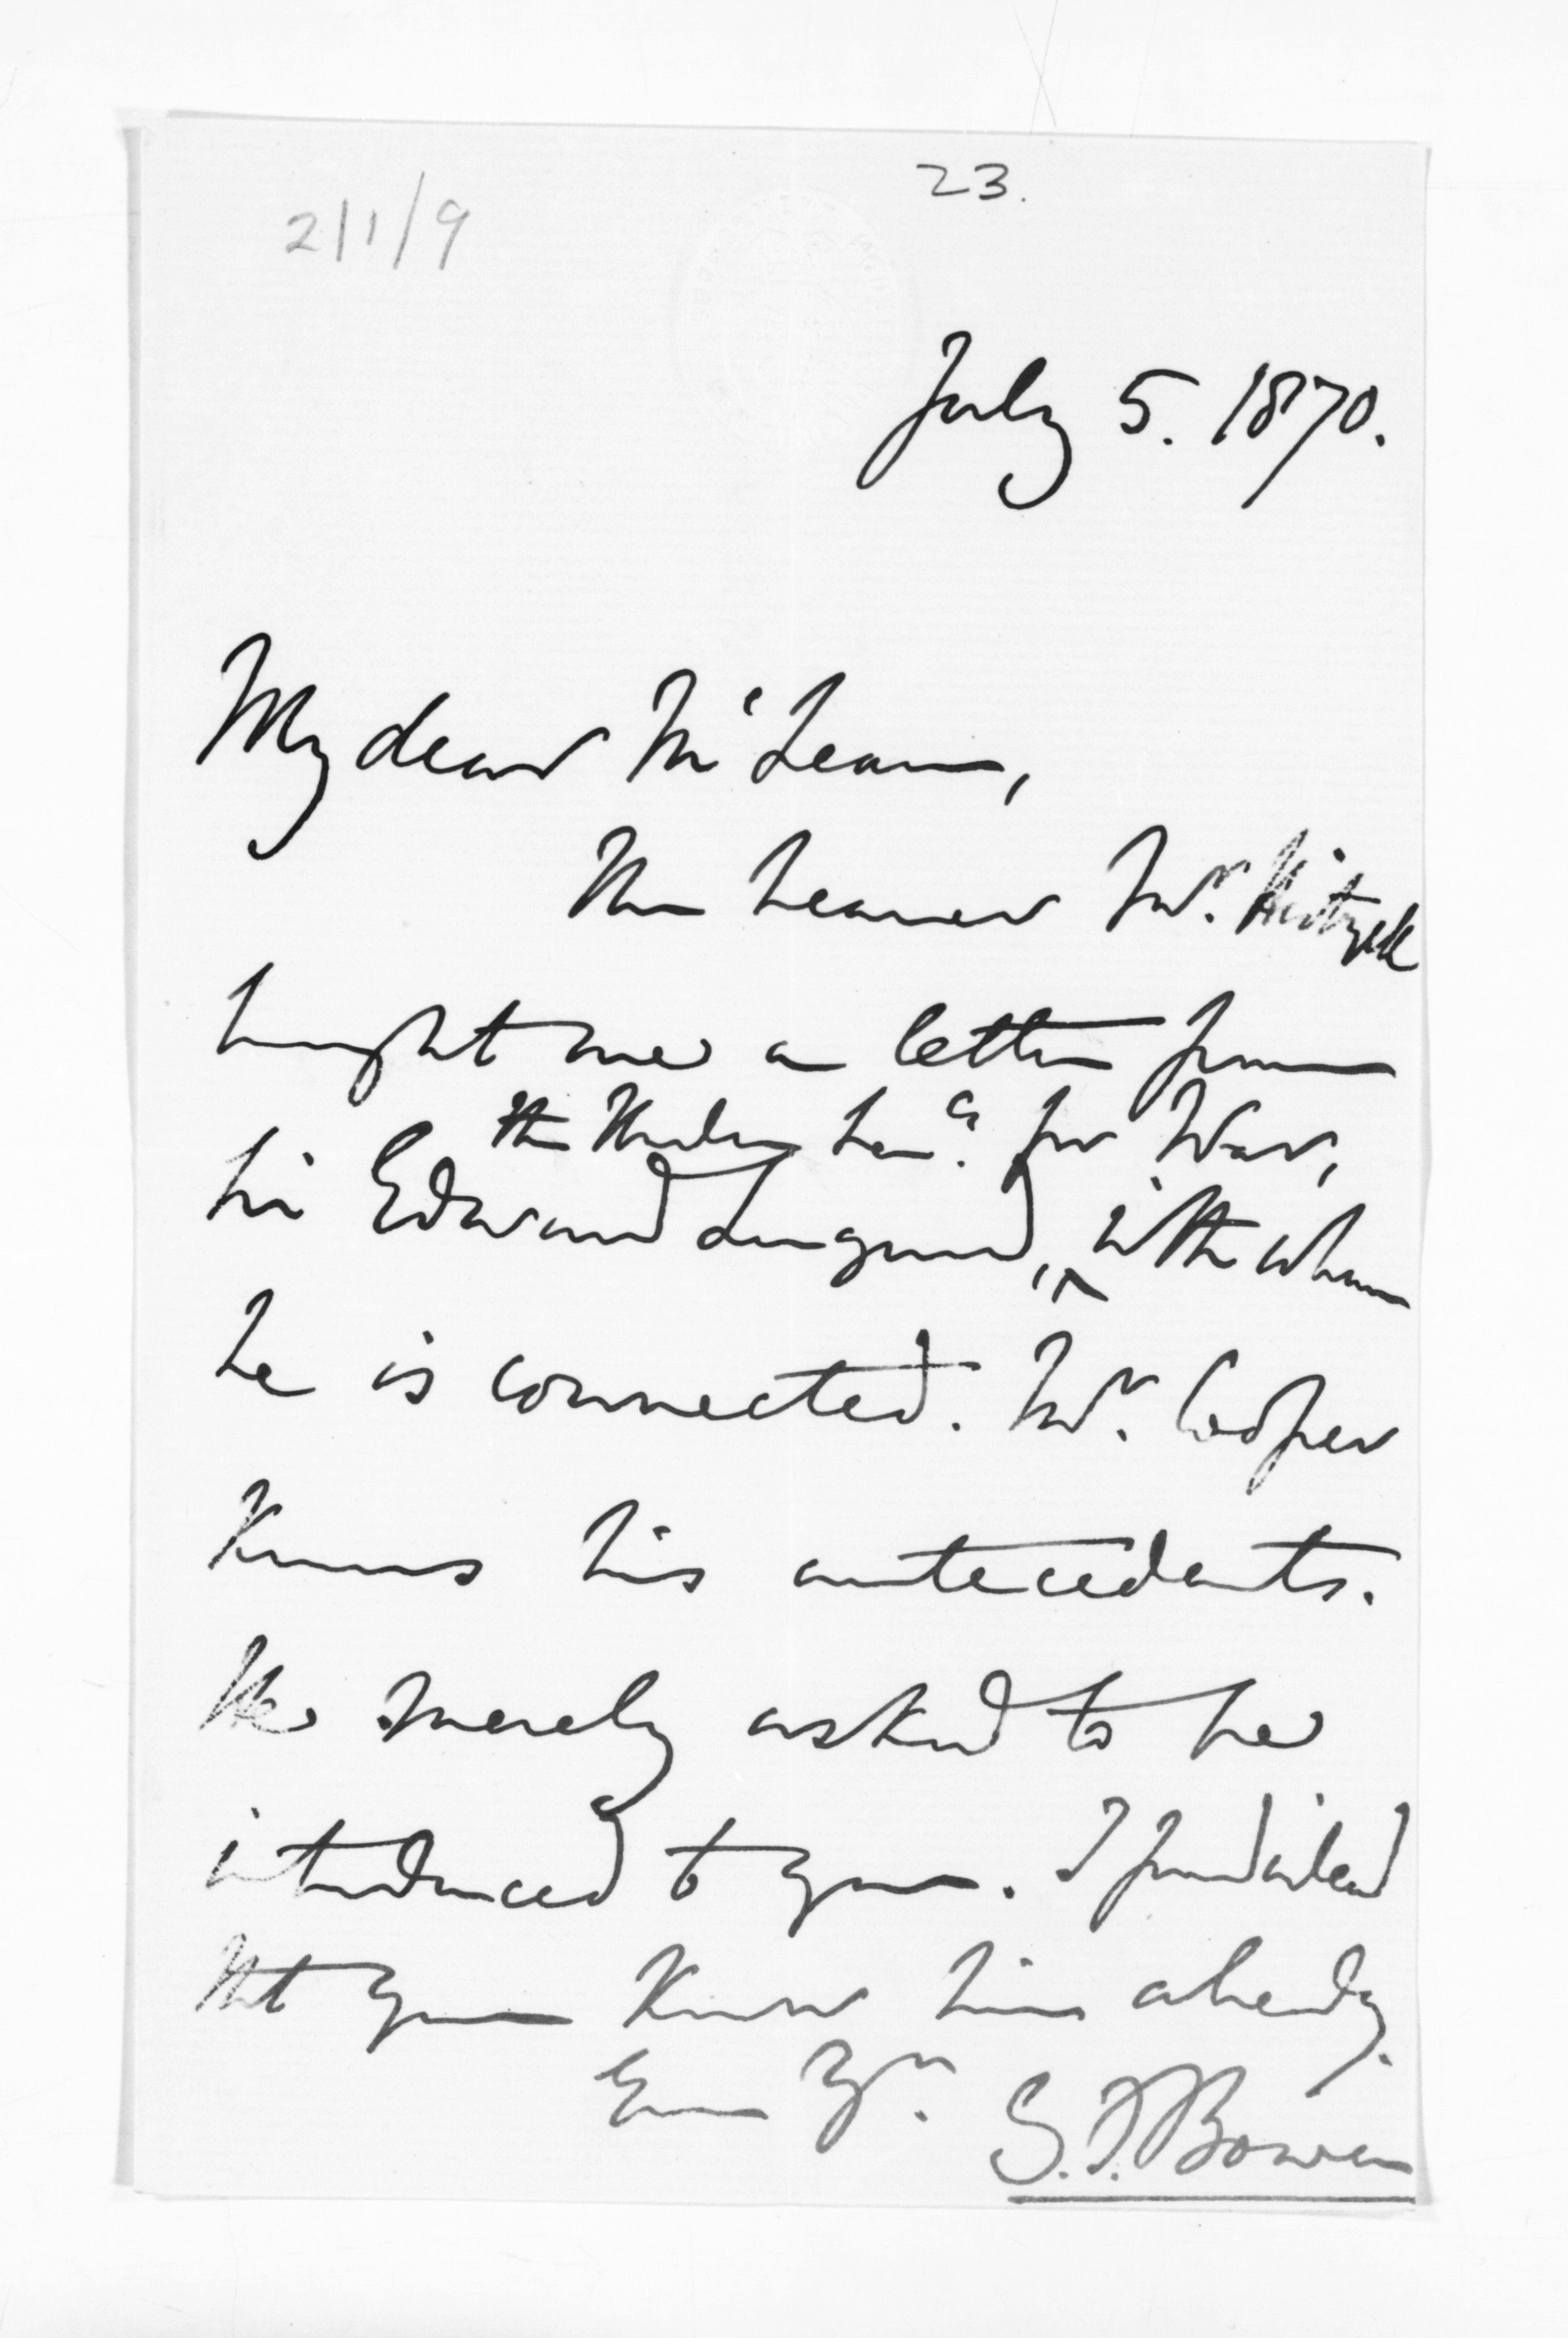 23.
2/1/9
July 5. 1870.
My dear McLean,
The bearer Mr.
brought me a letter from
the Under Secy. for War,
Sir Edward Lugard, with whom
he is connected. Mr. Cooper
knows his antecedents.
He merely asked to be
introduced to you.
that you know him already.
Ever Yrs.
G.F. Bowen